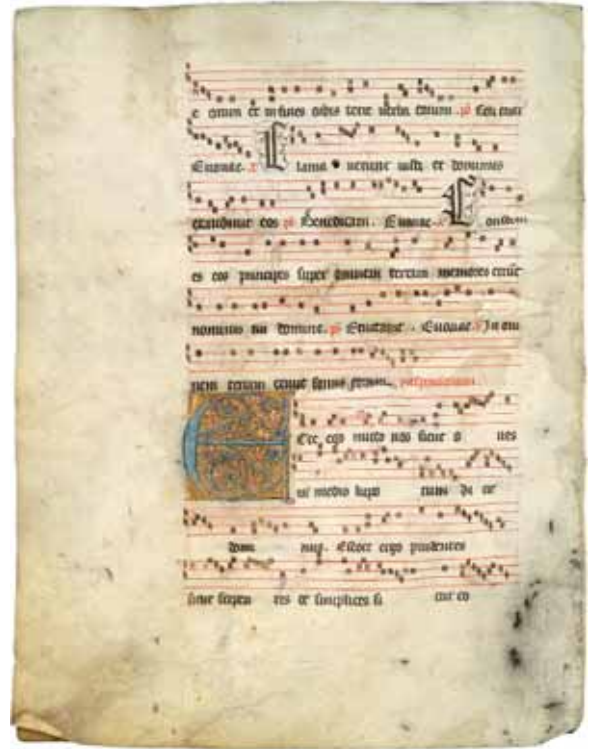 et in fines orbis terre uerba eorum. ps Celi enar
Euouae. Clama uerunt iusti et dominus
exaudiuit eos ps Benedicam. Euouae. Constitu
es eos principes super omnem terram memores erūt
nominis tui domine. ps Euouae. In om
nem terram exiuit sonus eorum.
Ecce ego mitto uos sicut o ues
in medio lupo rum di cit
Estote ergo prudentes
sicut serpen tes et simplices si cut co